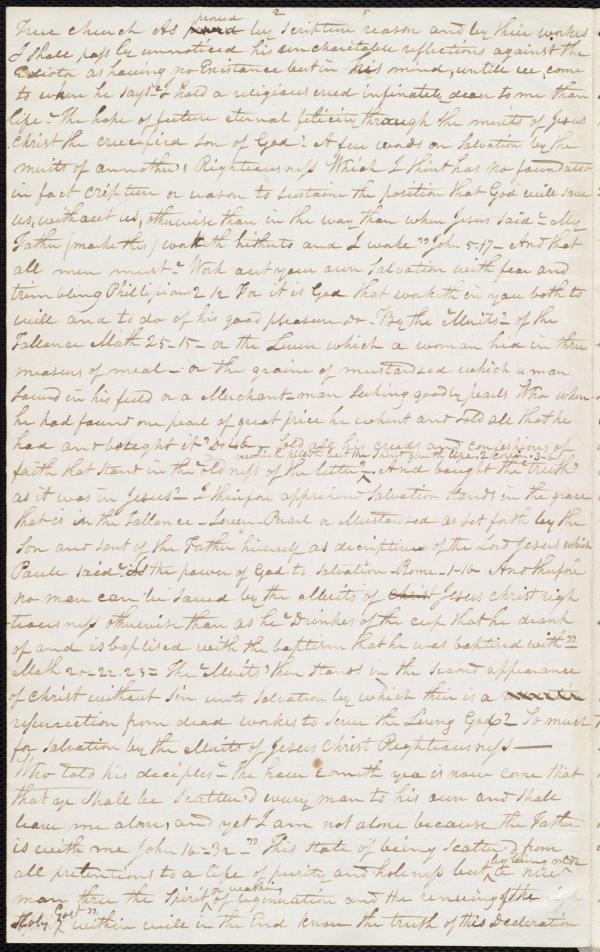 2
True church As proved by Scripture reason and by their works
I shall pass by unnoticed his uncharitable reflections against the
Ediotor as having no Existance but in his mind, untill we come
to where he says "I hold a religious creed infinately dear to me than
life" The hope of future eternal felicity through the merits of Jesus
Christ the crucified Son of God" A few words on Salvation by the
merits of annothers Righteousness Which I think has no foundation
in fact cripture or reason to sustaine the position that God will save
us, without us, otherwise than in the way than when Jesus said "My
Father (marke this) worketh hitherto and I worke" John 5-17- And that
all men must "Work out your own Salvation with fear and
trimbling Phillipians 2 12 For it is God that worketh in you both to
will and to do of his good pleasure do - By the "Merits" of the
Tallance Math 25-15- or the Leven which a woman hid in three
mesures of meal - or the graine of mustardsed which a man
sowed in his field or a Merchant-man seeking goodly pearls Who when
he had found one pearl of great price he whent and sold all that he
had and bought it" Do 46 - Sold all his creeds and confessions of
which killeth but the Spirit giveth life. 2 Corin. 3-6
faith that stand in the "oldness of the letter" - And bought the "truth
as it was in Jesus" - I therefore apprehend Salvation stands in the grace
that is in the Tallance - Leven - Pearl or Mustardsed as set forth by the
Son and sent of the Father himself as decriptive of the Lord Jesus which
Paul said "Is the power of God to Salvation - Rome - 1-16 And therefore
no man can be saved by the Merits of Jesus Christ righ
-teousness otherwise than as he "Drinkes of the cup that he drank
of and is baptised with the baptism that he was baptised with"
Math 20-22-23 = The "Merits" then stands in the second appearance
of Christ without Sin unto Salvation by which their is a
resurection from dead workes to serve the Living God" So much
for Salvation by the Merits of Jesus Christ Righteousness —
Who told his deciples "The hour cometh yea is now come that
that ye shall be scatter'd every man to his own and shall
leave me alone, and yet I am not alone because the Father
is with me John 16-32-" This state of being scatter'd from
all pretentions to a life of purity and holyness but by being made a new
man thro the Spirit or washing of regeneration and the renewing of the
Holy Gost" within will in the End know the truth of this Decleration